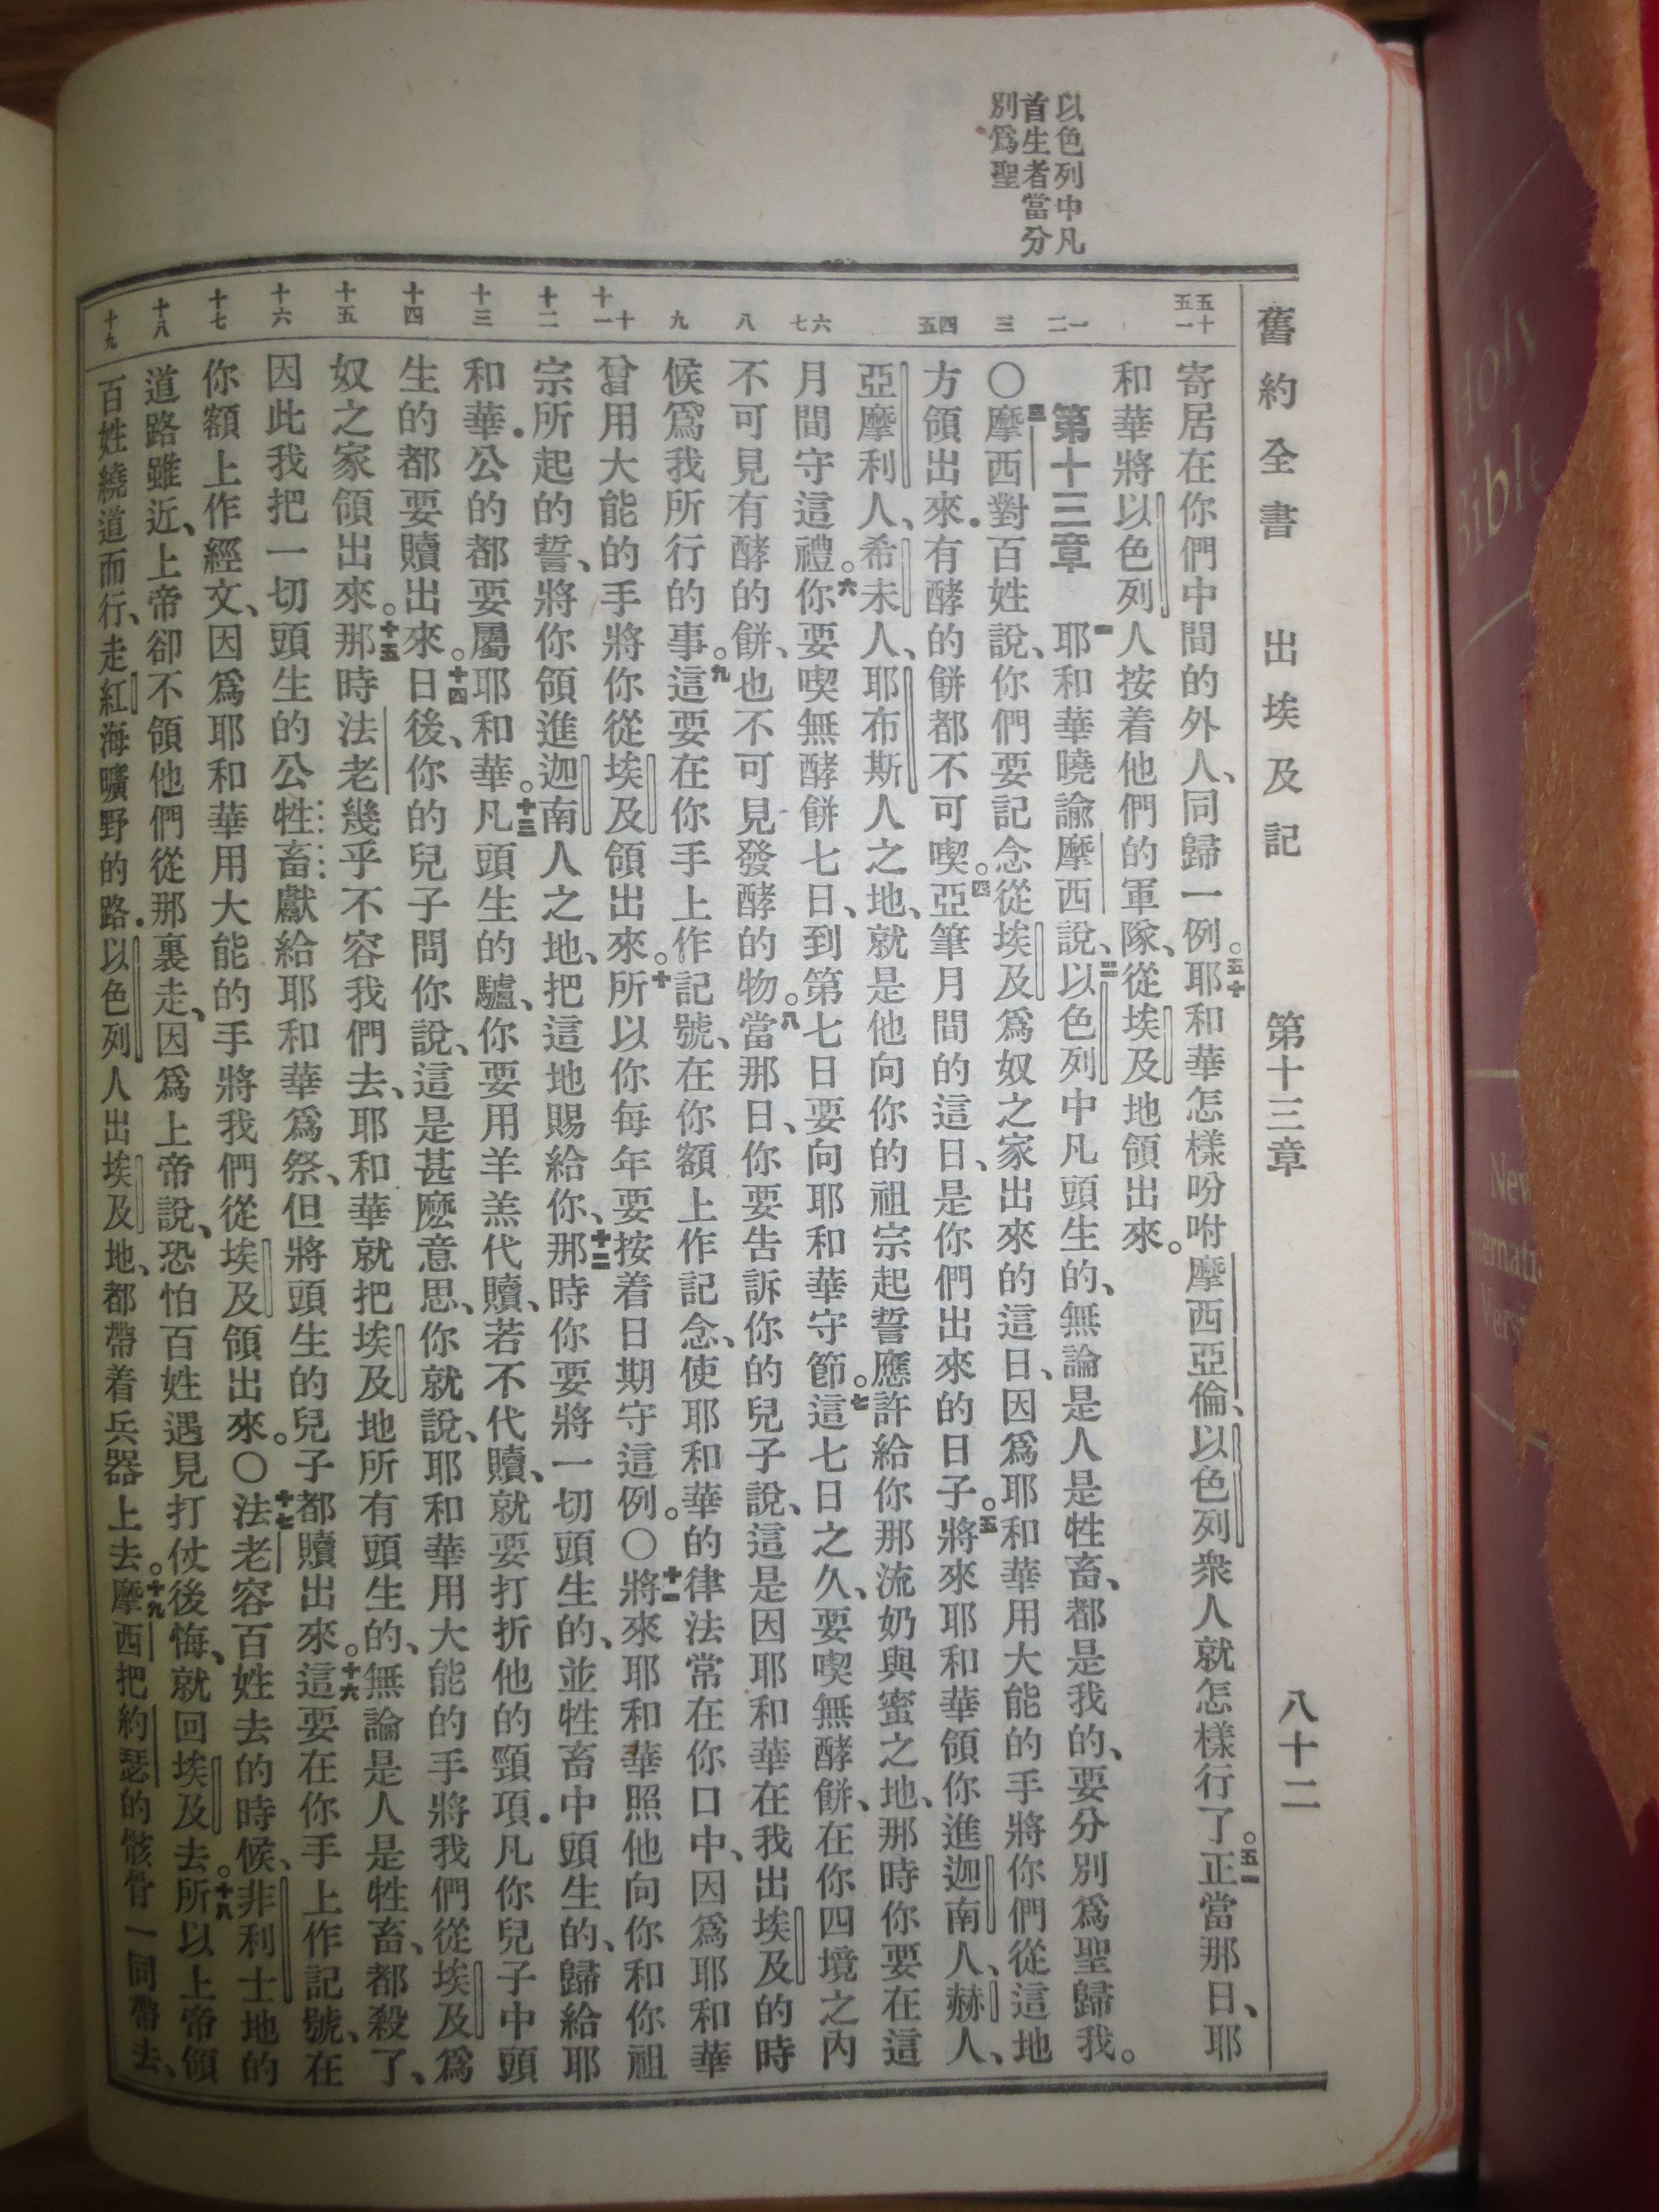 舊約全書 出埃及記 第十三章 八十二
以色列中凡
首生者當分
別爲聖
五十
五一
一
二
三
四
五
六
七
八
九
十
十一
十二
十三
十四
十五
十六
十七
十八
十九
寄居在你們中間的外人、同歸一例。五十耶和華怎樣吩咐摩西亞倫、以色列衆人就怎樣行了。五一正當那日、耶
和華將以色列人按着他們的軍隊、從埃及地領出來。
第十三章 一耶和華曉諭摩西說、二以色列中凡頭生的、無論是人是牲畜、都是我的、要分別爲聖歸我。
〇三摩西對百姓說、你們要記念從埃及爲奴之家出來的這日、因爲耶和華用大能的手將你們從這地
方領出來．有酵的餅都不可喫。四亞筆月間的這日、是你們出來的日子。五將來耶和華領你進迦南人、赫人、
亞摩利人、希未人、耶布斯人之地、就是他向你的祖宗起誓應許給你那流奶與蜜之地、那時你要在這
月間守這禮。六你要喫無酵餅七日、到第七日要向耶和華守節。七這七日之久、要喫無酵餅、在你四境之內
不可見有酵的餅、也不可見發酵的物。八當那日、你要告訴你的兒子說、這是因耶和華在我出埃及的時
候爲我所行的事。九這要在你手上作記號、在你額上作記念、使耶和華的律法常在你口中、因爲耶和華
曾用大能的手將你從埃及領出來。十所以你每年要按着日期守這例。〇十一將來耶和華照他向你和你祖
宗所起的誓、將你領進迦南人之地、把這地賜給你、十二那時你要將一切頭生的、並牲畜中頭生的、歸給耶
和華．公的都要屬耶和華。十三凡頭生的驢、你要用羊羔代贖、若不代贖、就要打折他的頸項．凡你兒子中頭
生的都要贖出來。十四日後、你的兒子問你說、這是甚麼意思、你就說、耶和華用大能的手將我們從埃及爲
奴之家領出來。十五那時法老幾乎不容我們去、耶和華就把埃及地所有頭生的、無論是人是牲畜、都殺了、
因此我把一切頭生的公牲畜獻給耶和華爲祭、但將頭生的兒子都贖出來。十六這要在你手上作記號、在
你額上作經文、因爲耶和華用大能的手將我們從埃及領出來。〇十七法老容百姓去的時候、非利士地的
道路雖近、上帝卻不領他們從那裏走、因爲上帝說、恐怕百姓遇見打仗後悔、就回埃及去。十八所以上帝領
百姓繞道而行、走紅海曠野的路．以色列人出埃及地、都帶着兵器上去。十九摩西把約瑟的骸骨一同帶去、
Holy
Bible